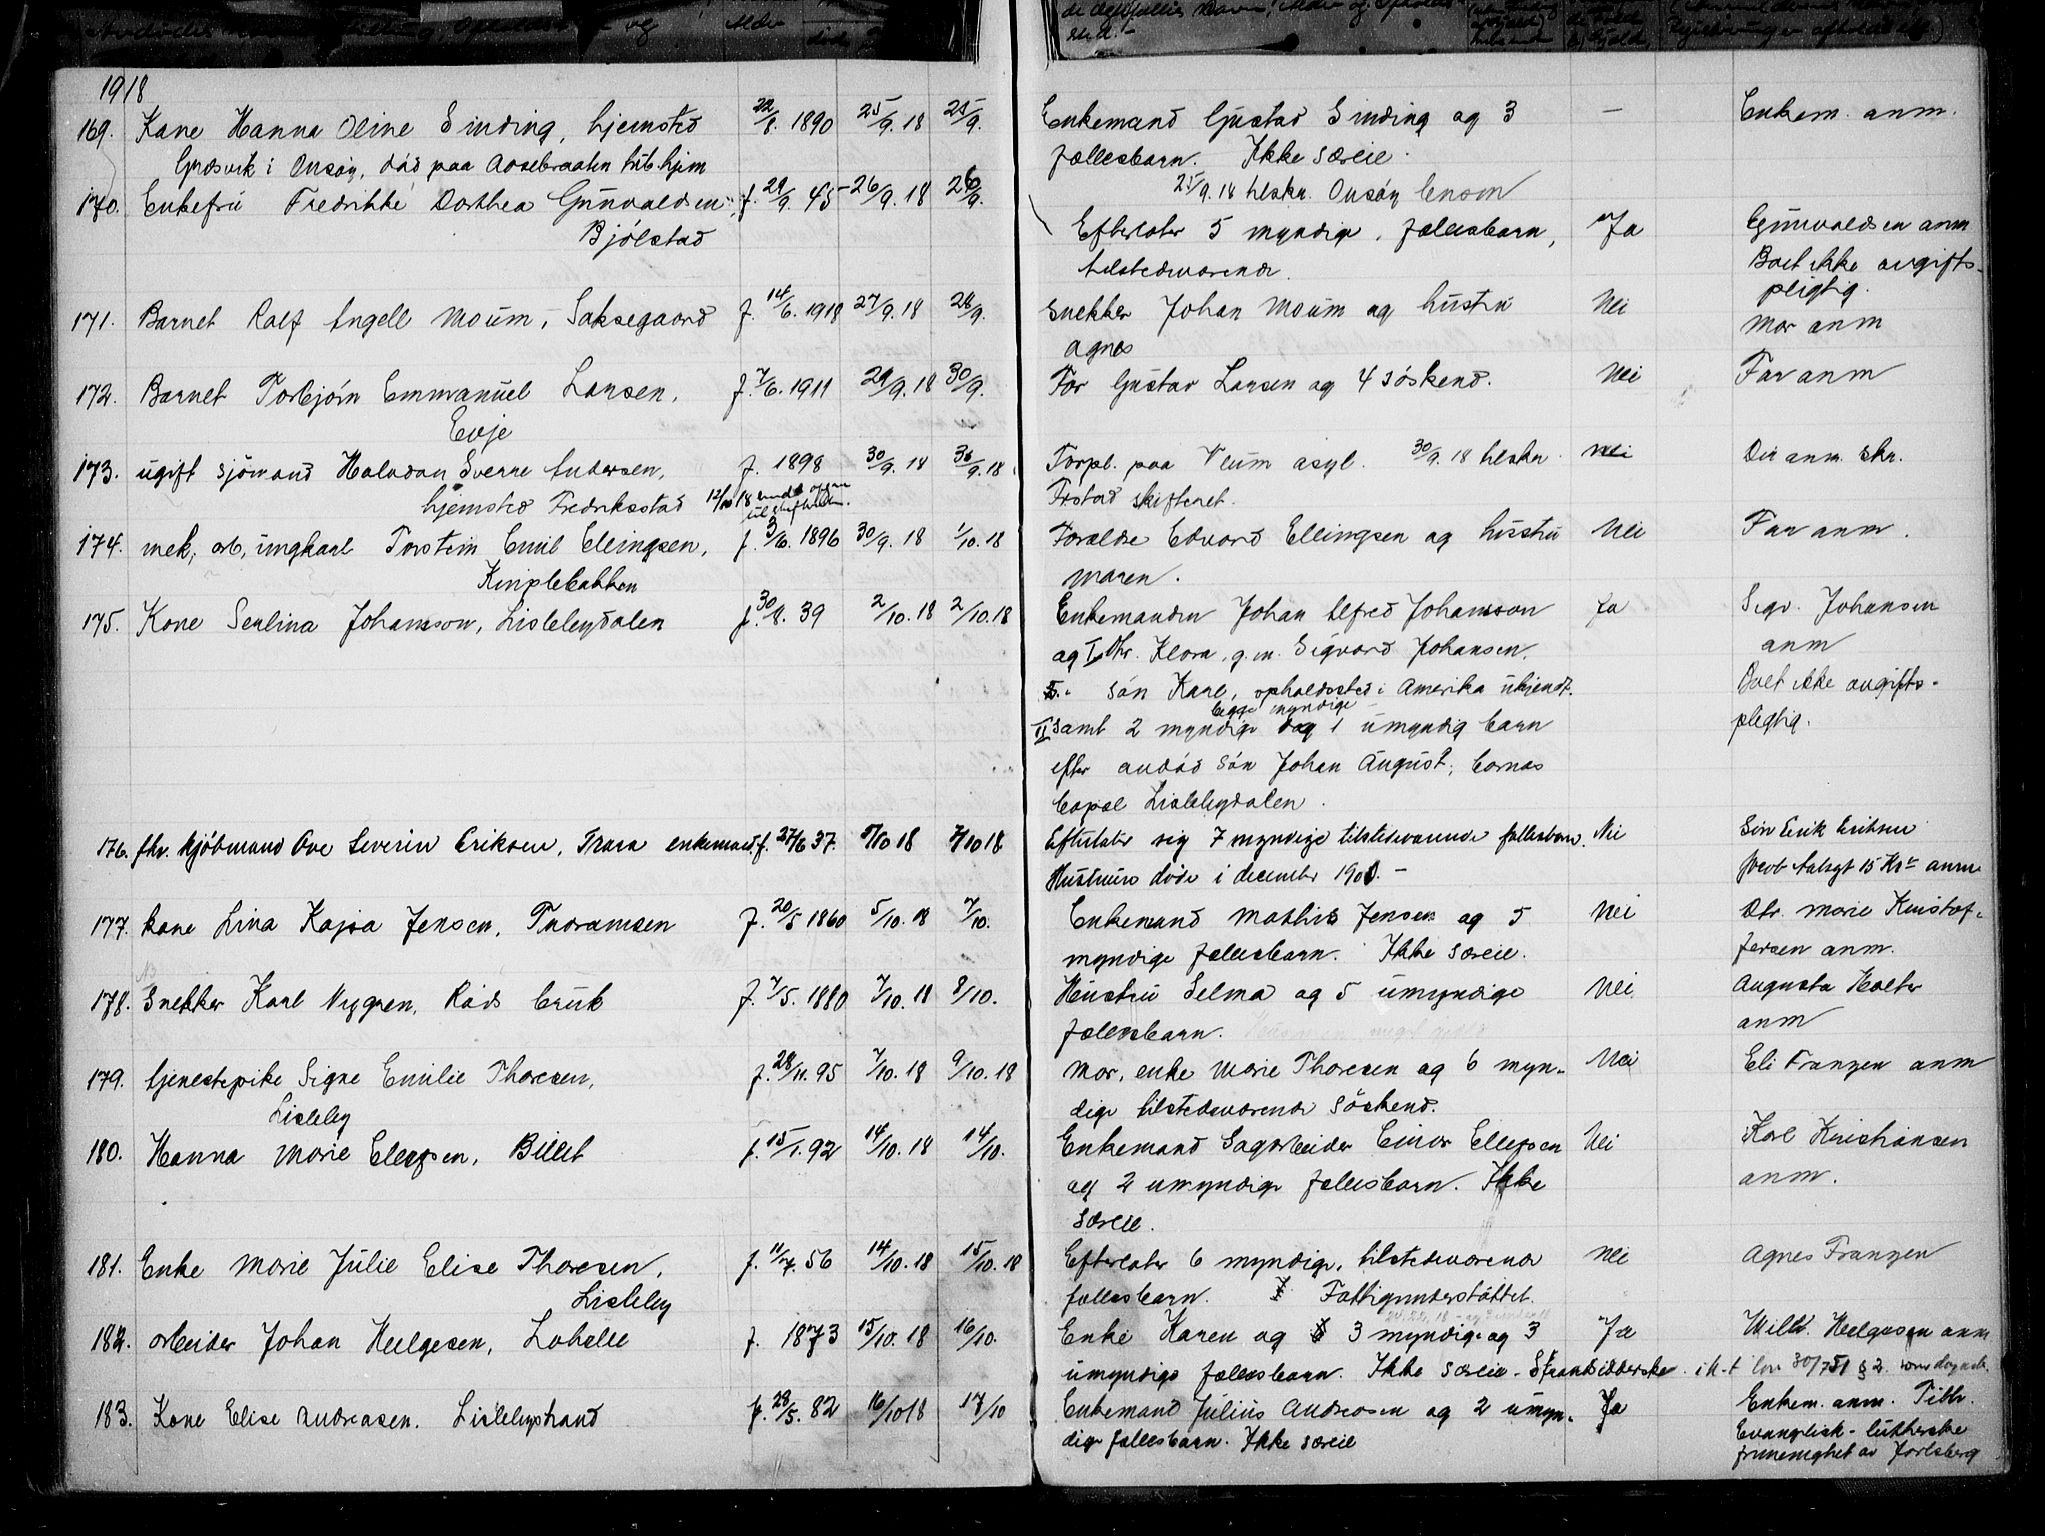 1918
169. Kone Hanna Oline Sinding, hjemsted 22/8. 1890 25/9. 18 25/9. Enkemand Gustav Sinding og 3 — Enkem. anm.
i Onsøy, død paa hjem fællesbarn. Ikke særeie.
25/9. 18 tilskr. Onsøy
170. Enkefru Fredrikke Dorthea Gunvaldsen, f. 29/9. 45 26/9. 18 26/9. Efterlater 5 myndige, fællesbarn, Ja Gunvaldsen anm
Bjölstad tilstedeværende. Boet ikke avgifts-
pligtig.
171. Barnet Rolf Angell Moum, Saksegaard f. 14/6. 1918 27/9. 18 28/9. Snekker Johan Moum og hustru Nei Mor anm
Agnes
172. Barnet Torbjörn Emmanuel Larsen, f. 7/6. 1911 29/9. 18 30/9. Far Gustav Larsen og 4 söskend. Nei Far anm
Evje
173. ugift sjömand Halvdan Sverre Andersen, f. 1898 30/9. 18 30/9. 18 Forpl. paa Veum asyl. 30/9. 18 tilskr. Nei Dir anm. skr.
hjemsted Fredriksstad 12/10 18 Frstad skifteret.
174. mek, arb, ungkarl Torstein Emil Ellingsen, f. 3/6. 1896 30/9. 18 1/10. 18 Forældre Edvard Ellingsen og hustru Nei Far anm.
Kniplebakken Maren.
175. Kone Senlina Johansson, Lislebydalen f. 30/8. 39 2/10. 18 2/10. 18 Enkemanden Johan Alfred Johansson Ja Sigv. Johansen
og I Dtr. Klara, g.m. Sigvard Johansen. anm
sön Karl, opholdssted i Amerika ukjendt. Boet ikke avgifts-
begge myndige
II samt 2 myndige og 1 umyndig barn pligtig.
efter avdöd sön Johan August, barnas
bopæl Lislebydalen.
176. fhv. kjöbmand Ove Severin Eriksen, Trara enkemand f. 27/6 37. 5/10 18 7/10 18 Efterlater sig 7 myndige tilstedeværende fællesbarn. Nei Sön Erik Eriksen
Hustruen döde i december 1900. — 15 Kr anm
177. Kone Lina Kajsa Jensen, Thoramsen f. 20/5 1860 5/10. 18 7/10. Enkemand Mathis Jensen og 5 Nei Dtr. Marie Kristof-
myndige fællesbarn. Ikke særeie. fersen anm.
178. Snekker Karl Nygren, Röds bruk f. 7/5. 1880 7/10. 18 8/10. Hustru Selma og 5 umyndige Nei Augusta Holter
fællesbarn. anm
179. tjenestepike Signe Emilie Thoresen, f. 28/11. 95 7/10. 18 9/10. 18 Mor, enke Marie Thoresen og 6 myn- Nei Eli Franzen anm
Lisleby dige tilstedeværende söskend.
180. Hanna Marie Ellefsen, Billet f. 15/1. 92 14/10. 18 14/10. Enkemand Sagarbeider Einar Ellefsen Nei Karl Kristiansen
og 2 umyndige fællesbarn. Ikke anm.
særeie.
181. Enke Marie Julie Elise Thoresen, f. 11/7. 56 14/10. 18 15/10. 18 Efterlater 6 myndige, tilstedeværende Nei Agnes Franzen
Lisleby fællesbarn. Fattigunderstöttet.
182. Arbeider Johan Helgesen, Labelle f. 1873 15/10. 18 16/10. Enke Karen og 3 myndige og 3 Ja Willh. Helgesen anm
umyndige fællesbarn. Ikke særeie - Strandsidderske 30/7 51 § 2.
183. Kone Elise Andreasen. Lislebystrand f. 29/5. 82 16/10 18 17/10 Enkemand Julius Andreasen og 2 umyn- Ja Enkem. anm. Tilh.
dige fællesbarn. Ikke særeie Evangelisk-lutherske
frimenighet av Jarlsberg